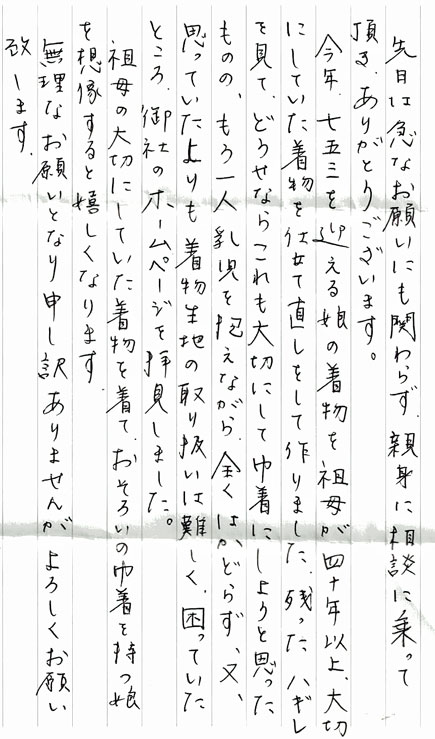 先日は急なお願いにも関わらず、親身に相談に乗って
頂き、ありがとうございます。
今年、七五三を迎える娘の着物を祖母が四十年以上、大切
にしていた着物を仕立て直しをして作りました。残ったハギレ
を見て、どうせならこれも大切にして巾着にしようと思った
ものの、もう一人乳児を抱えながら、全くはかどらず、又、
思っていたよりも着物生地の取り扱いは難しく、困っていた
ところ、御社のホームページを拝見しました。
祖母の大切にしていた着物を着て、おそろいの巾着を持つ娘
を想像すると嬉しくなります。
無理なお願いとなり申し訳ありませんがよろしくお願い
致します。